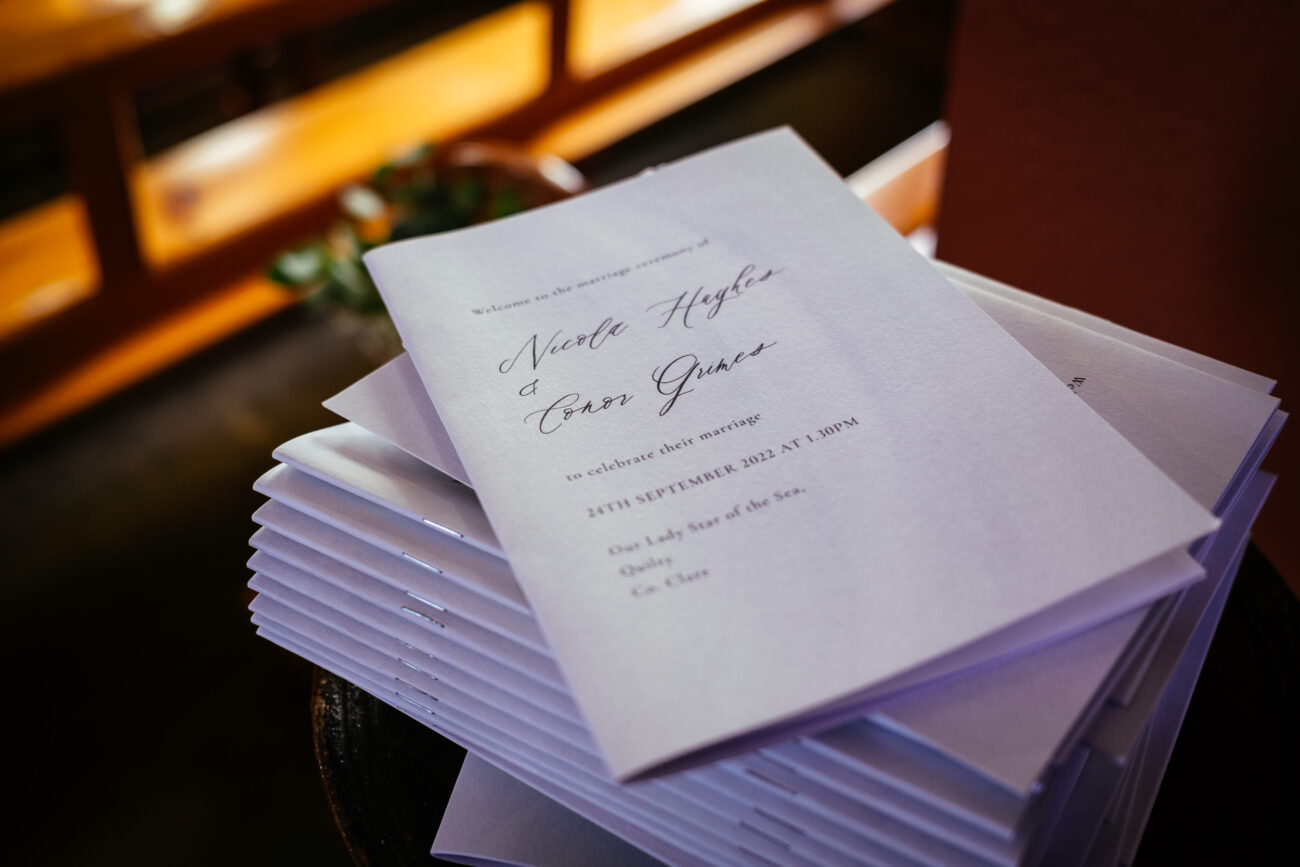 Welcome to the marriage ceremony of
Nicola Hughes
&
Conor Grimes
to celebrate their marriage
24TH SEPTEMBER 2022 AT 1.30PM
Our Lady Star of the Sea,
Quilty
Co. Clare
We